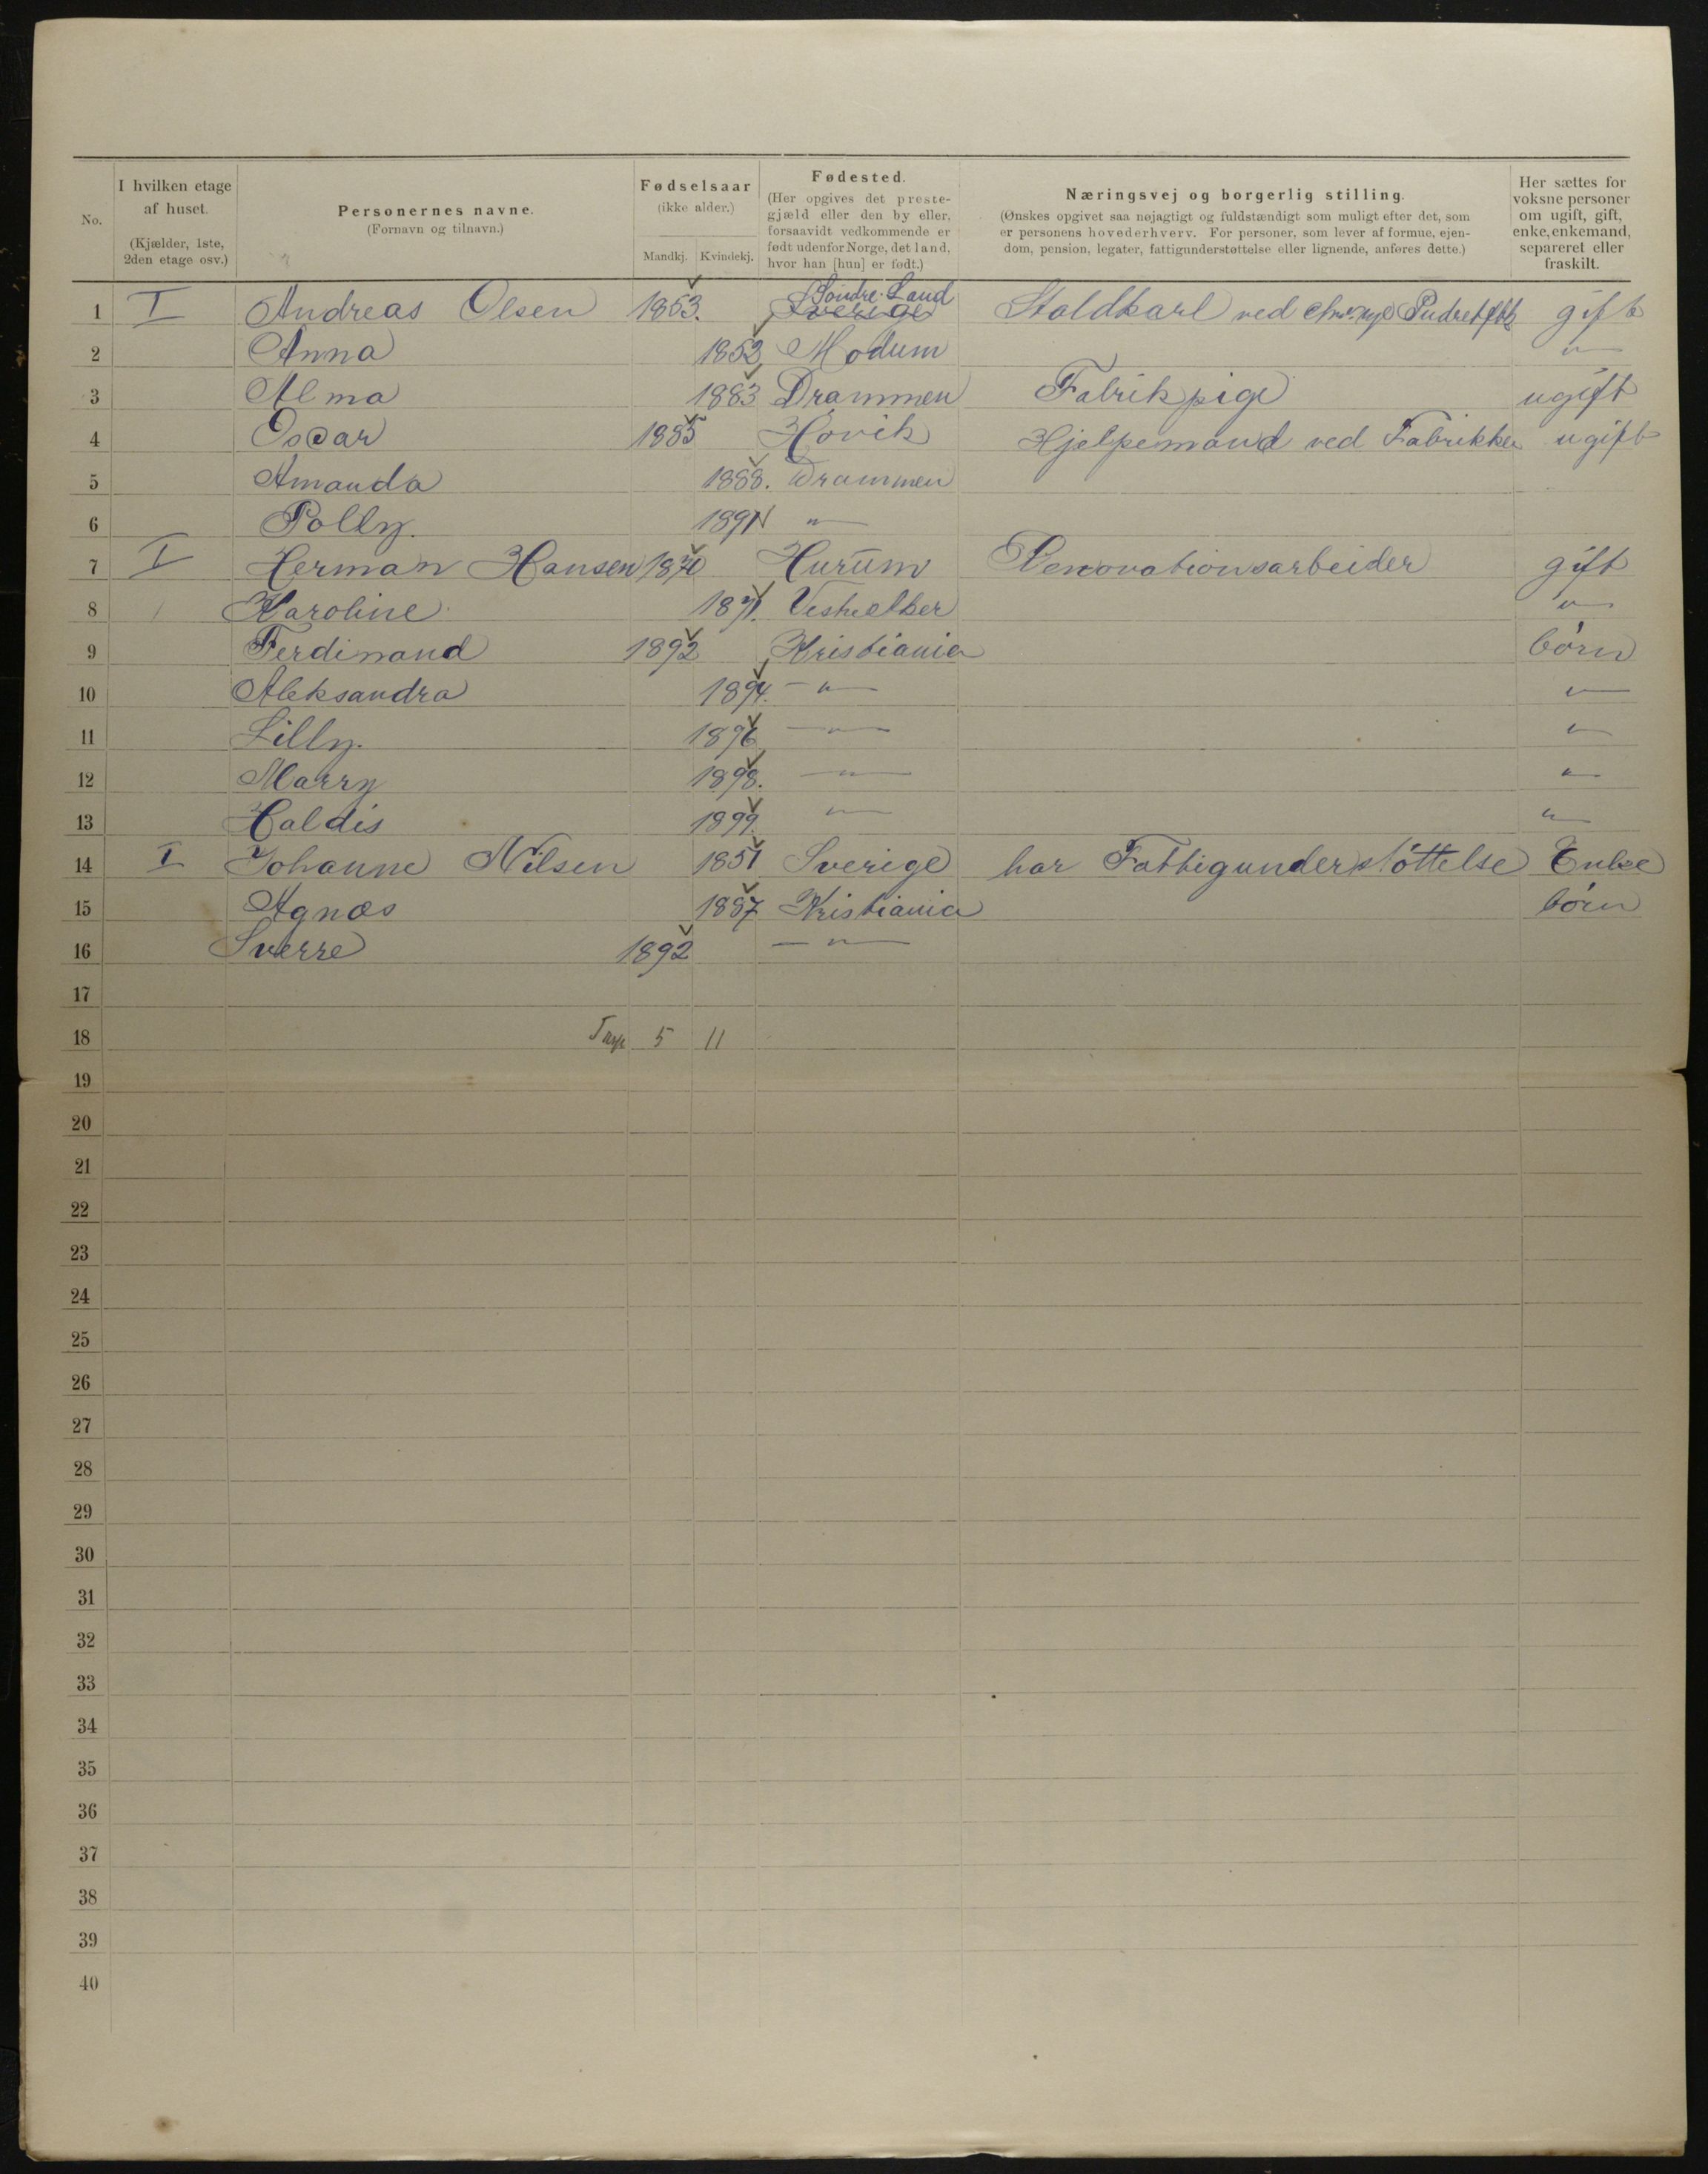 No.
I hvilken etage
af huset.
(Kjælder, 1ste,
2den etage osv.)
Personernes navne.
(Fornavn og tilnavn.)
Fødselsaar
(ikke alder.)
Mandkj. Kvindekj.
Fødested.
(Her opgives det preste-
gjæld eller den by eller,
forsaavidt vedkommende er
født udenfor Norge, det land,
hvor han [hun] er født.)
Næringsvej og borgerlig stilling.
(Ønskes opgivet saa nøjagtigt og fuldstændigt som muligt efter det, som
er personens hovederhverv. For personer, som lever af formue, ejen-
dom, pension, legater, fattigunderstøttelse eller lignende, anføres dette.)
Her sættes for
voksne personer
om ugift, gift,
enke, enkemand,
separeret eller
fraskilt.
Söndre Land
1 I Andreas Olsen 1853. Sverige Staldkarl ved gift
2 Anna 1852 Modum "
3 Alma 1883 Drammen Fabrikpige ugift
4 Oscar 1885 Hovik Hjelpemand ved Fabrikken ugift
5 Amanda 1888. Drammen
6 Polly. 1891 "
7 I Herman Hansen 1870 Hurum Renovationsarbeider gift
8 Karoline 1871. "
9 Ferdinand 1892 Kristiania börn
10 Aleksandra 1894. " "
11 Lilly. 1896 " "
12 Marry 1898. " "
13 Haldis 1899. " "
14 I Johanne Nilsen 1851 Sverige har Fattigunderstöttelse Enke
15 Agnes 1887 Kristiania börn
16 Sverre 1892 "
17
18 5 11
19
20
21
22
23
24
25
26
27
28
29
30
31
32
33
34
35
36
37
38
39
40